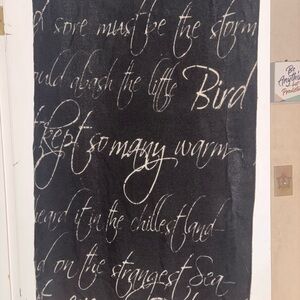 d sore must be the storm
ould abash the little Bird
kept so many warm
heard it in the chillest land
d on the strangest Sea
Be
Anything
but
Predictable